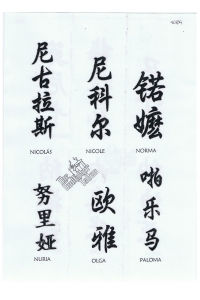 尼古拉斯
NICOLÁS
尼科尔
NICOLE
锘嬷
NORMA
努里娅
NURIA
欧雅
OLGA
啪乐马
PALOMA